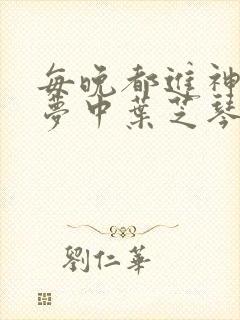 每晚都進神
夢中葉芝琴
劉仁華